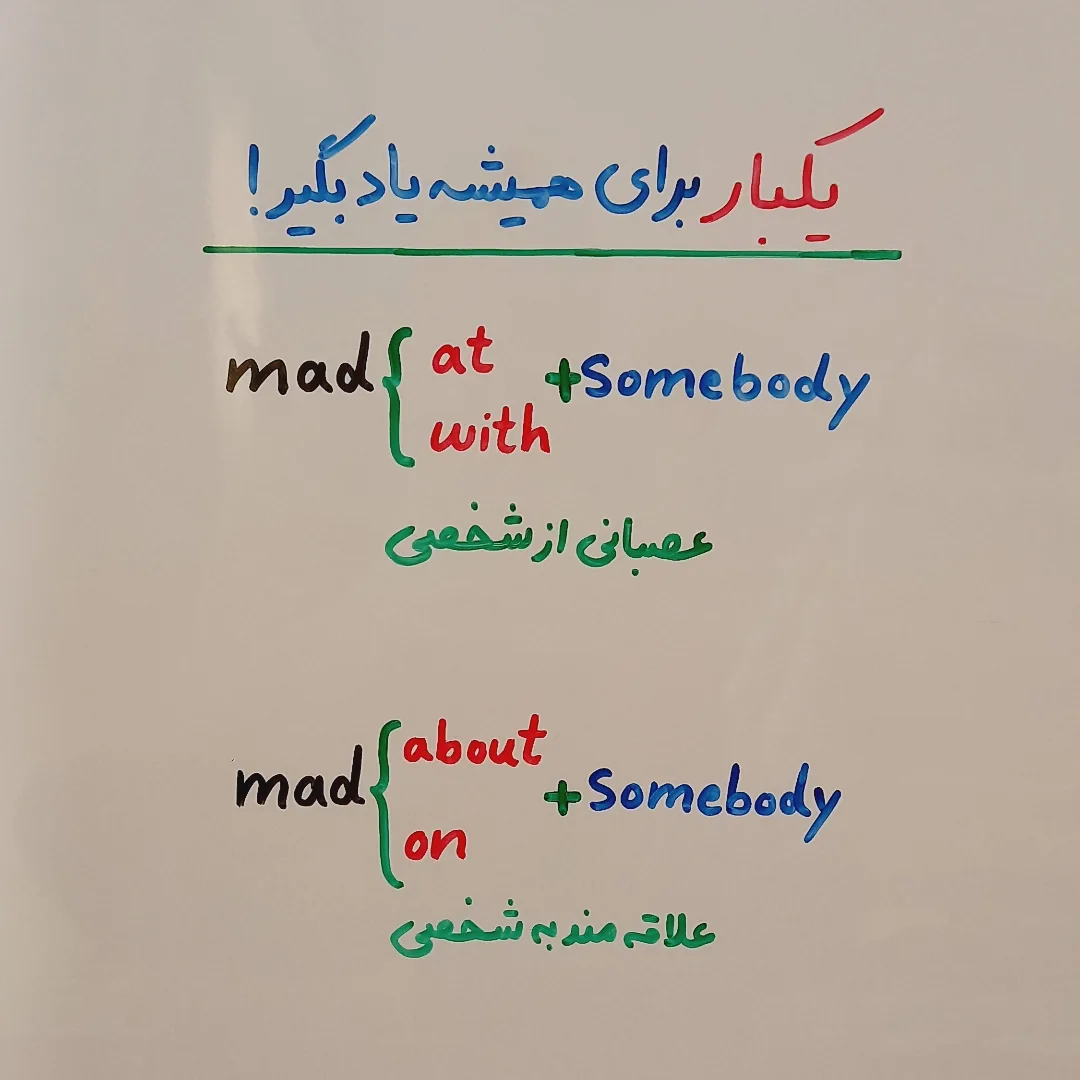 یکبار برای همیشه یاد بگیر!
mad { at with + Somebody
عصبانی از شخصی
mad { about on + Somebody
علاقه مند به شخصی